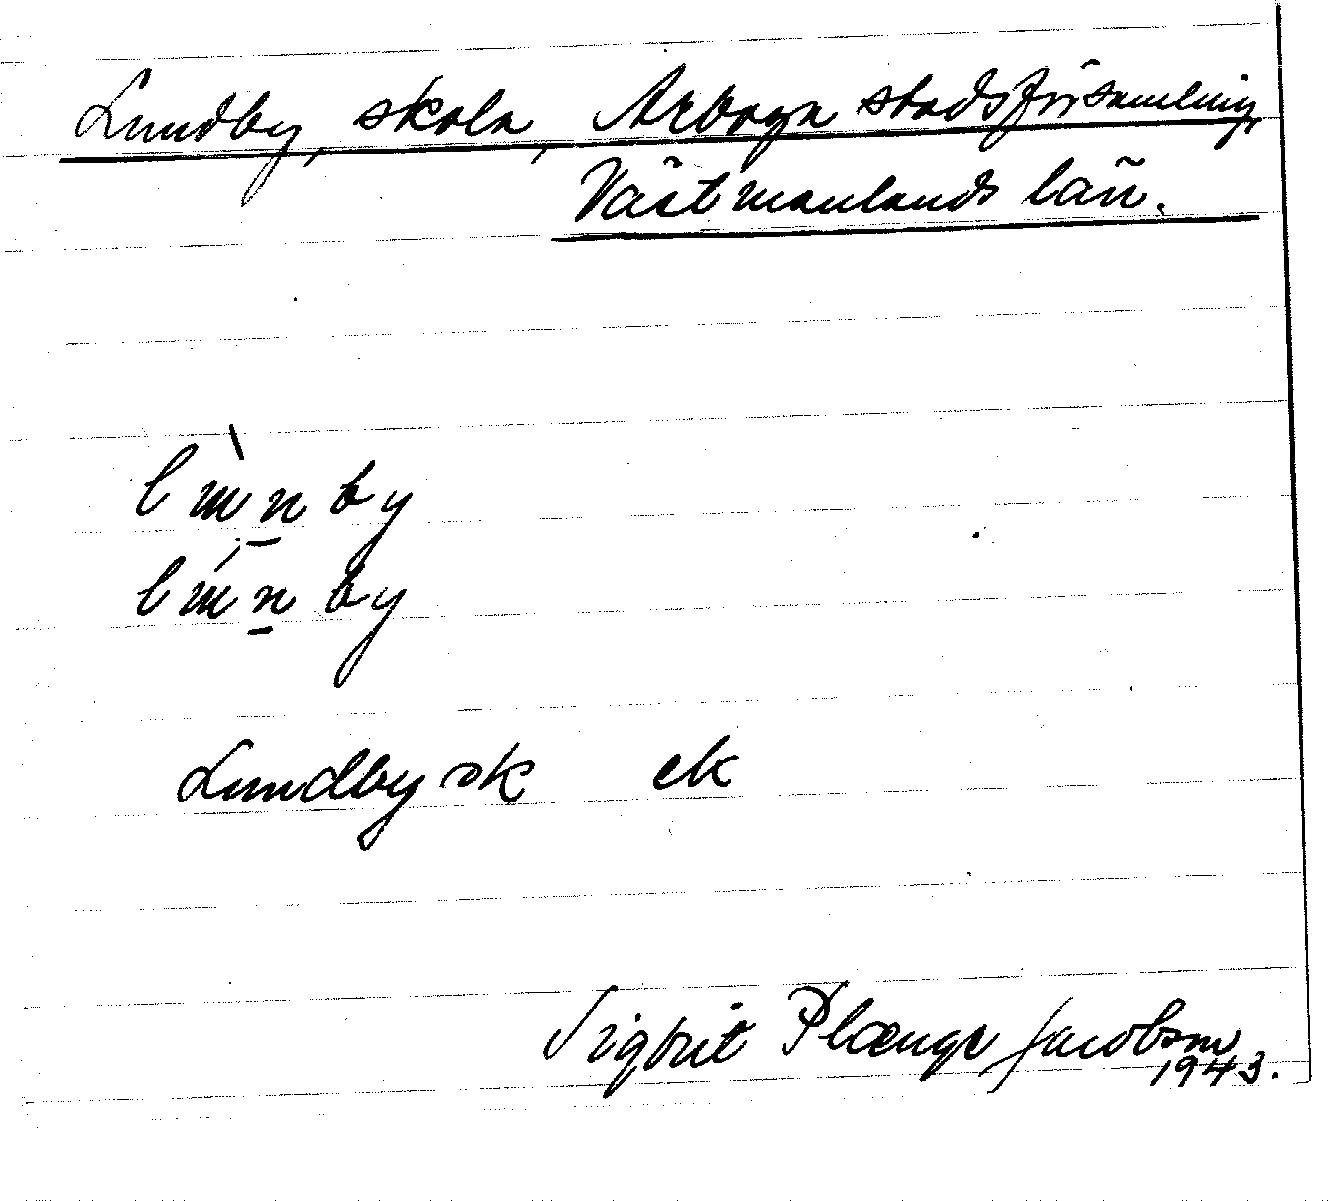 Lundby, skola, Arboga stadsförsamling,
Västmanlands län.
lùn̲by
lún̲by
Lundby sk ek
Sigbrit Plænge Jacobson
1943.